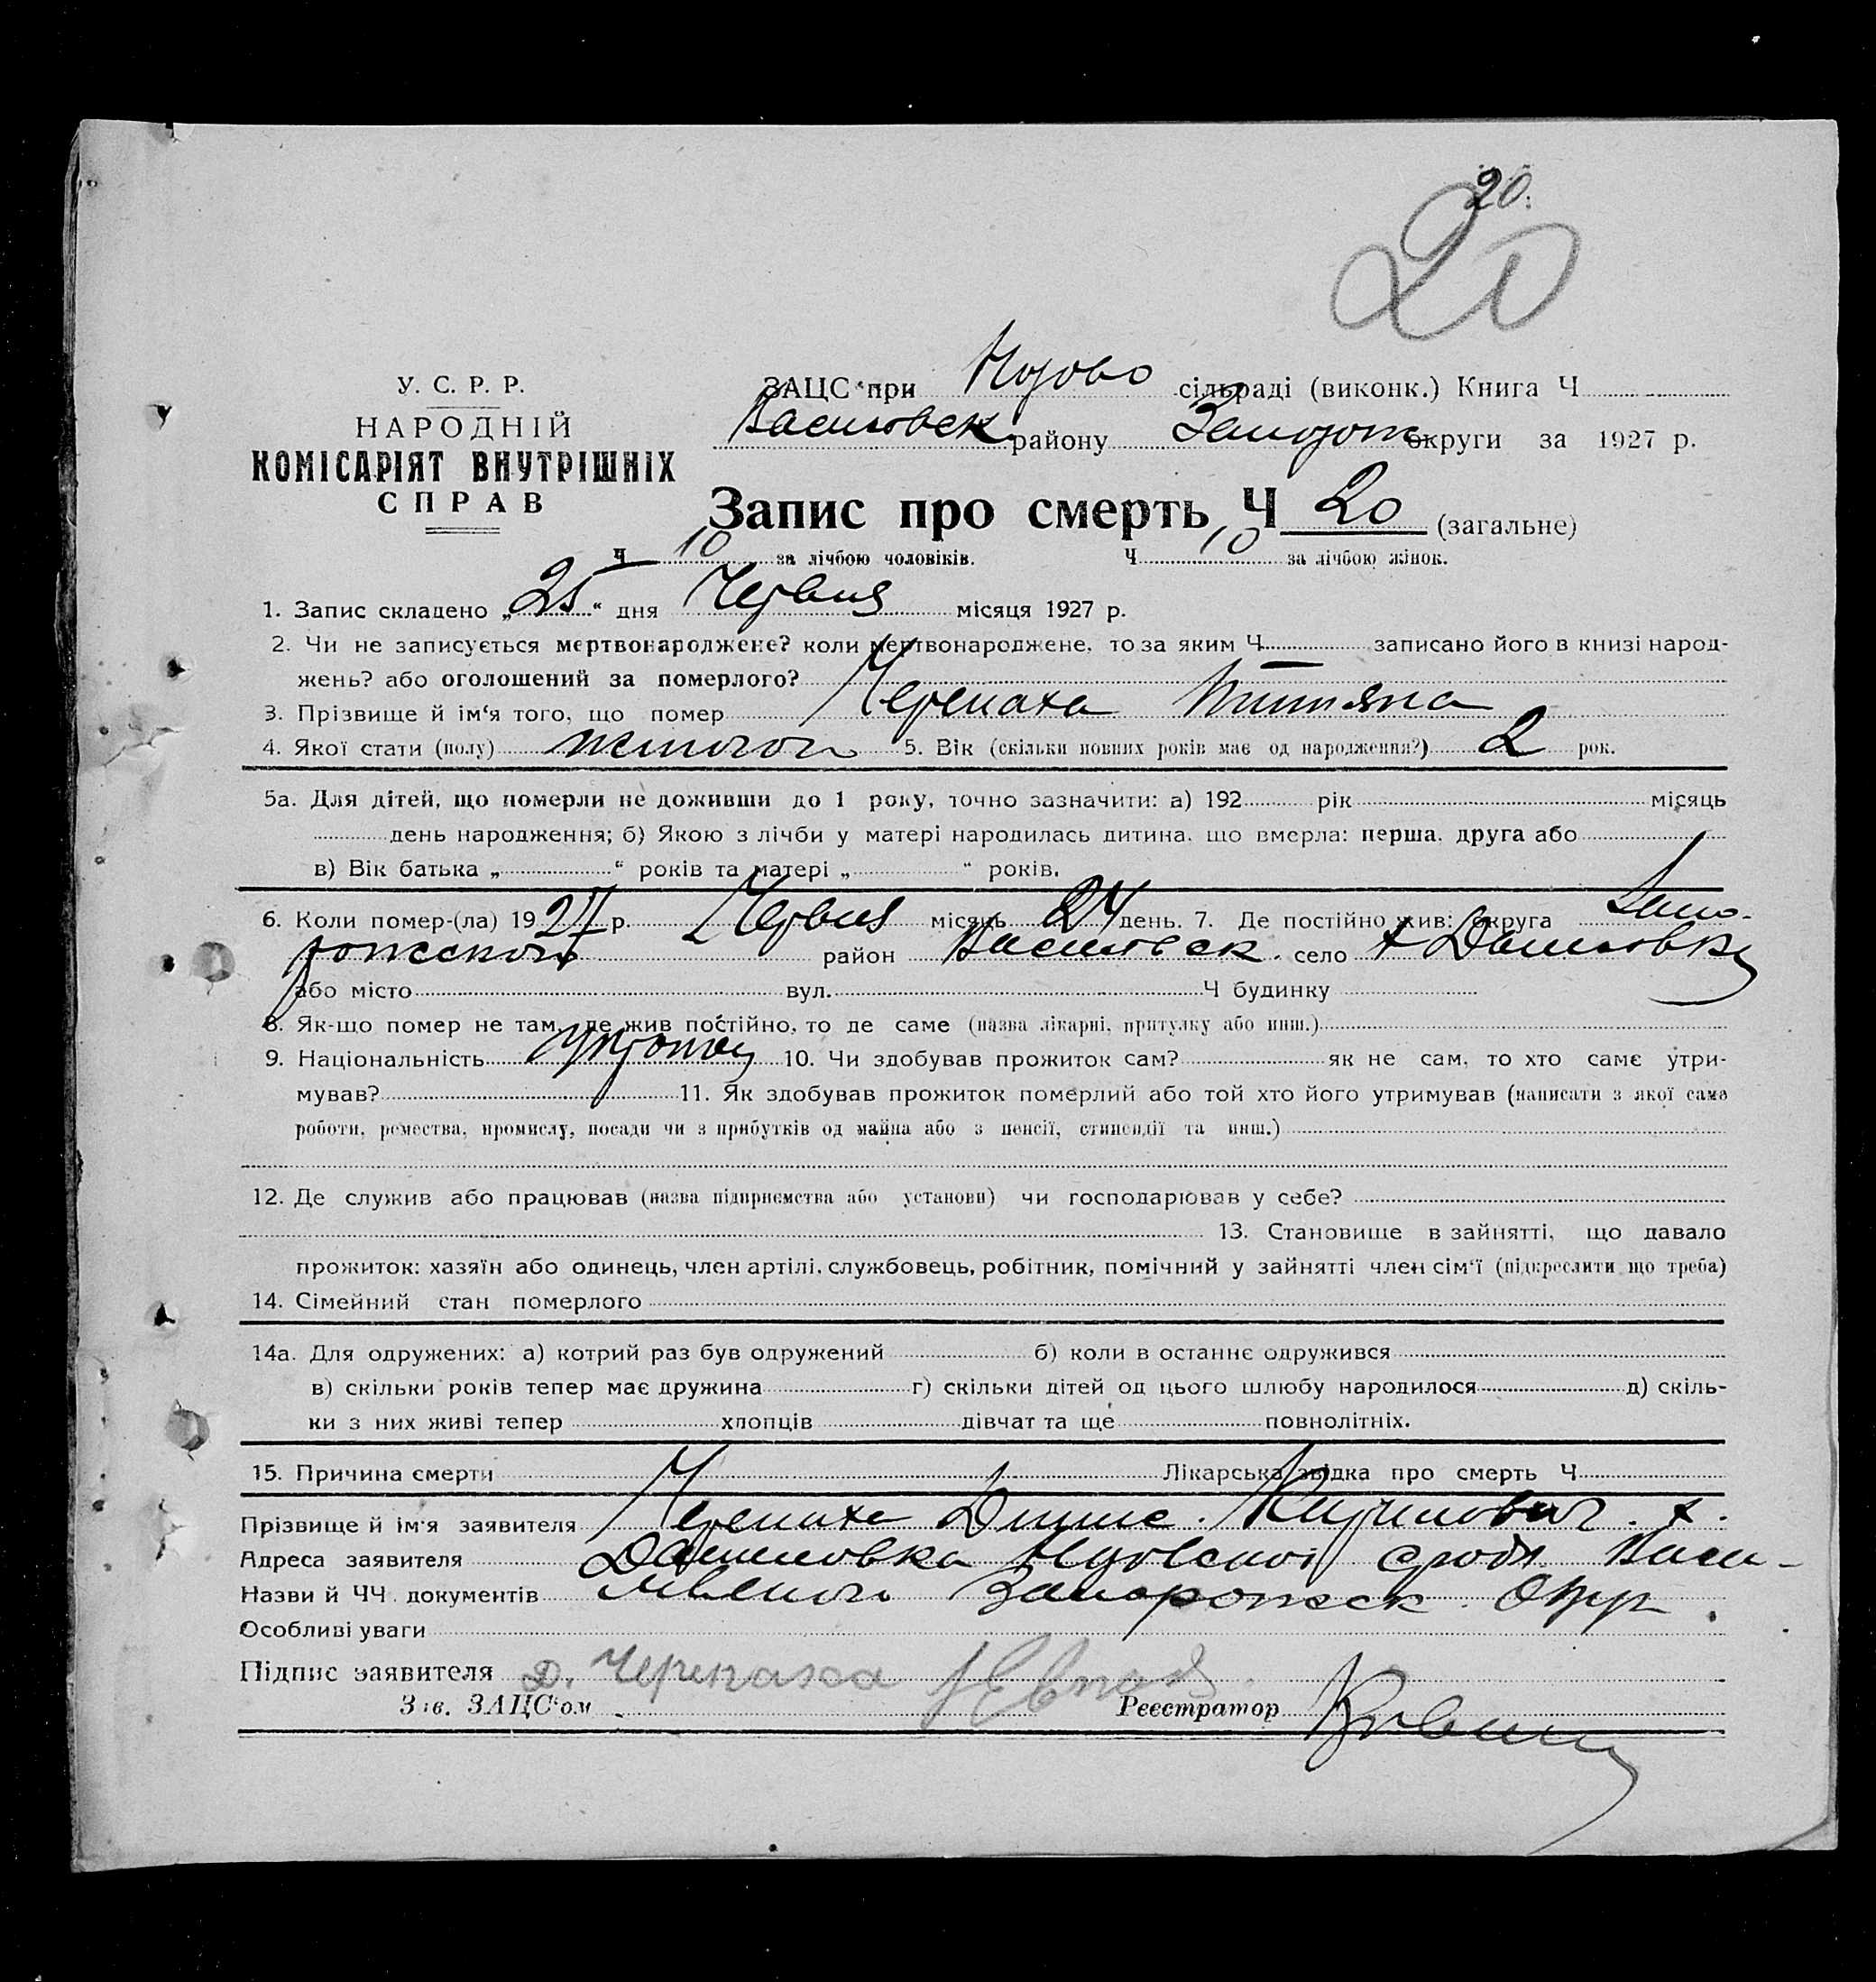 20.
20
У. С. Р. Р.
НАРОДНІЙ
КОМІСАРІЯТ ВНУТРІШНІХ
СПРАВ
ЗАЦС при сільраді (виконк.) Книга Ч
Васильовск району Запорож округи за 1927 р.
Запис про смерть Ч 20 (загальне)
Ч 10 за лічбою чоловіків. Ч 10 за лічбою жінок.
1. Запис складено „25“ дня Червня місяця 1927 р.
2. Чи не записується мертвонароджене? коли мертвонароджене, то за яким Ч — записано його в книзі народ-
жень? або оголошений за померлого?
3. Прізвище й ім‘я того, що помер Черепаха
4. Якої стати (полу) жиночои 5. Вік (скільки повних років має од народження?) 2 рок.
5а. Для дітей, що померли не доживши до 1 року, точно зазначити: а) 192 рік місяць
день народження; б) Якою з лічби у матері народилась дитина, що вмерла: перша, друга або
в) Вік батька „ “ років та матері „ “ років.
6. Коли помер-(ла) 1927 р. Червня місяць 24 день. 7. Де постійно жив: округа Запо-
рожской район Васильевск. село х Даниловка
або місто вул. Ч будинку
8. Як-що помер не там, де жив постійно, то де саме (назва лікарні, притулку або инш.)
9. Національність 10. Чи здобував прожиток сам? як не сам, то хто саме утри-
мував? 11. Як здобував прожиток померлий або той хто його утримував (написати з якої сама
роботи, ремества, промислу, посади чи з прибутків од майна або з пенсії, стипендії та инш.)
12. Де служив або працював (назва підприємства або установи) чи господарював у себе?
13. Становище в зайнятті, що давало
прожиток: хазяїн або одинець, член артілі, службовець, робітник, помічний у зайнятті член сім‘ї (підкреслити що треба)
14. Сімейний стан померлого
14а. Для одружених: а) котрий раз був одружений б) коли в останнє одружився
в) скільки років тепер має дружина г) скільки дітей од цього шлюбу народилося д) скіль-
ки з них живі тепер хлопців дівчат та ще повнолітніх.
15. Причина смерти Лікарська звідка про смерть Ч
Прізвище й ім‘я заявителя Черепаха х.
Адреса заявителя Даниловка Васи-
Назви й ЧЧ документів Запорожск. Окру.
Особливі уваги
Підпис заявителя Д. Черепаха
Зав. ЗАЦС‘ом Реєстратор